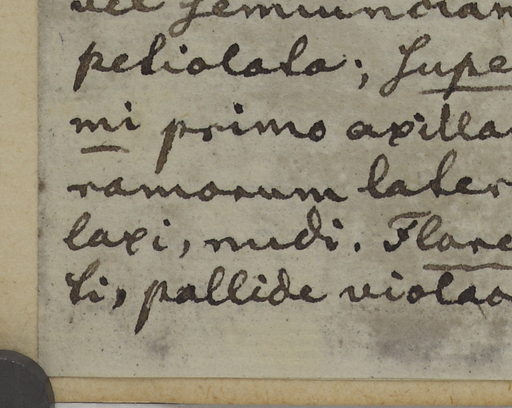 vel semiundian
petiolata; Supe
mi primo axilla
ramorum later
laxi, nudi. Flore
ti, pallide violac